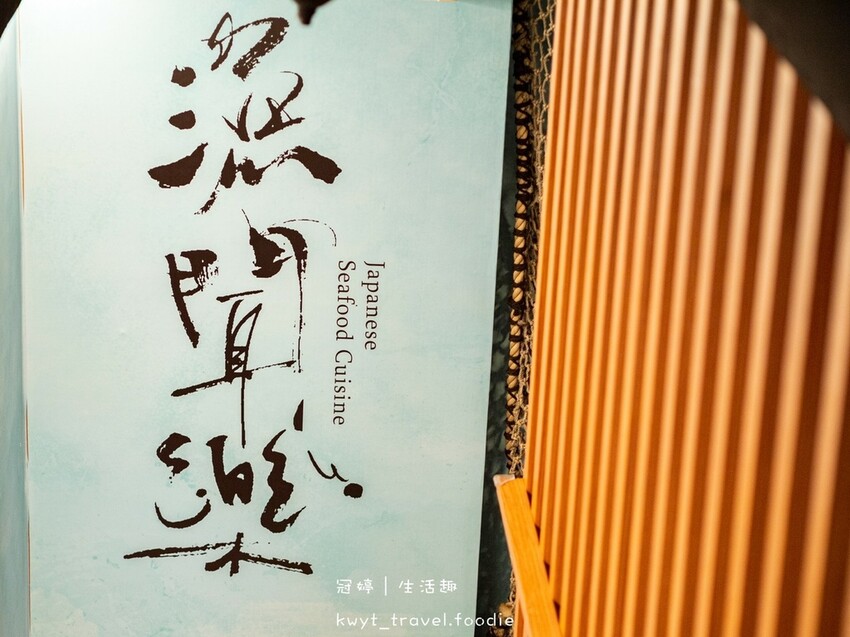 漁聞樂
Japanese
Seafood Cuisine
冠婷｜生活趣
kwyt_travel.foodie